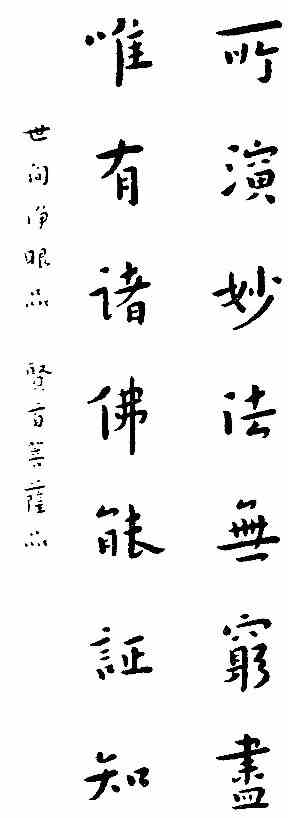 所演妙法無窮盡
唯有諸佛能証知
世间净眼品 賢首菩薩品